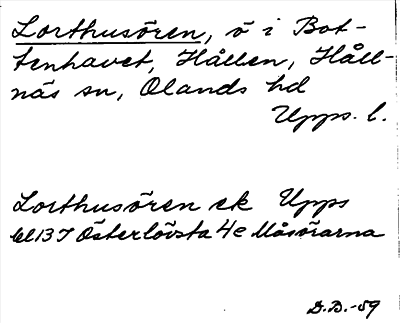 Lorthusören, ö i Bot-
tenhavet, Hållen, Håll-
näs sn, Olands hd
Upps. l.
Lorthusören ek Upps
bl 13 7 Österlövsta 4e Måsörarna
D.B.-59